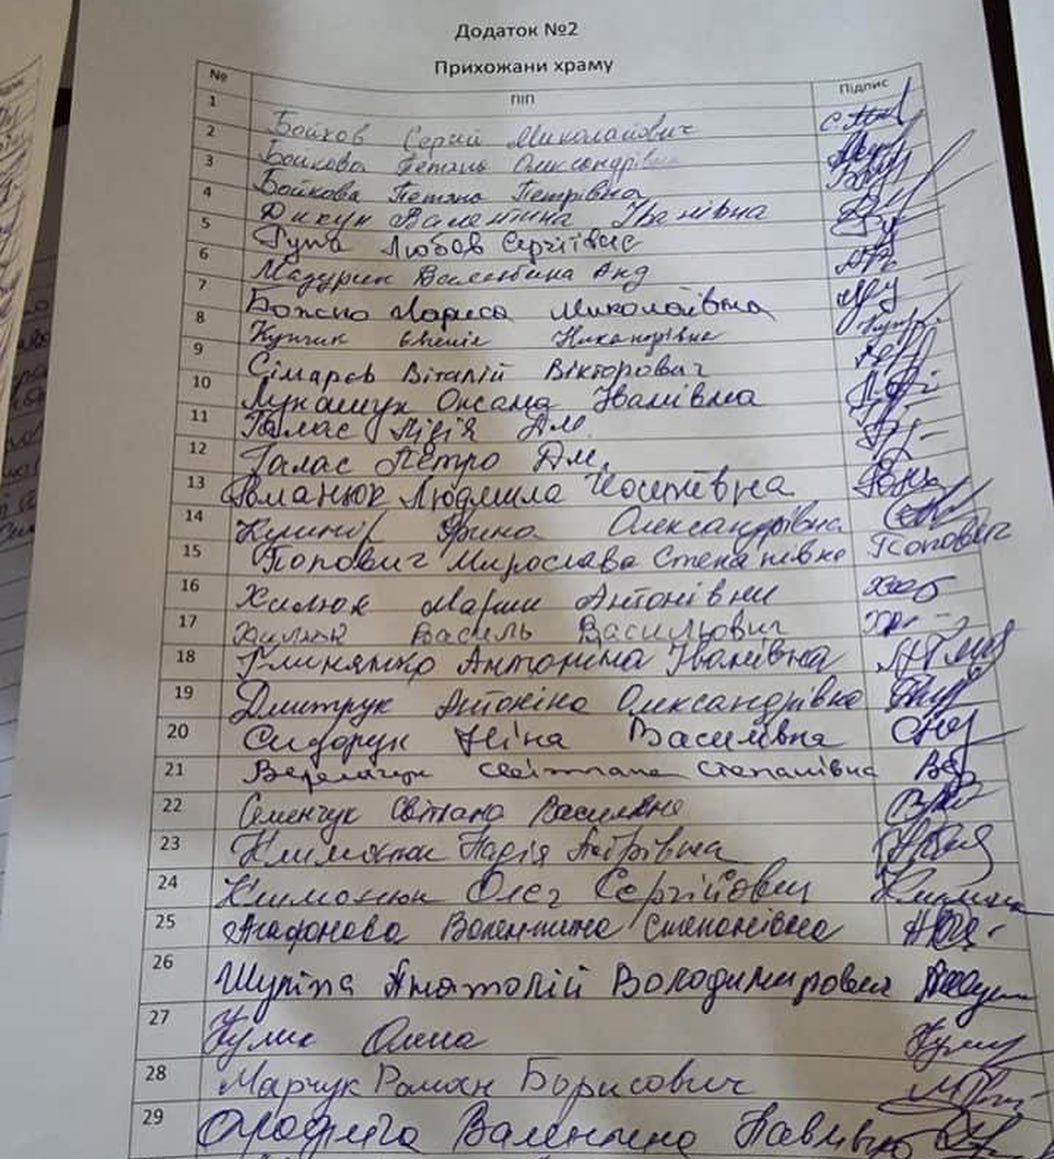 Додаток №2
Прихожани храму
№ ПІП Підпис
1 Бойков Сергій Миколайович
2 Бойкова Тетяна Олександрівна
3 Бойкова Тетяна Петрівна
4 Дикун Валентина Іванівна
5 Гупа Любов Сергіївна
6 Мадурин Валентина Анд
7 Божко Лариса Миколаївна
8 Купчик Євгенія Никанорівна
9 Сімаров Віталій Вікторович
10 Лукашук Оксана Іванівна
11 Галас Лідія Дм.
12 Галас Петро Дм.
13 Романюк Людмила Йосипівна
14 Кушнір Ярина Олександрівна
15 Попович Мирослава Степанівна Попович
16 Хилюк Марія Антонівна
17 Хилюк Василь Васильович
18 Антоніна Іванівна
19 Дмитрук Антоніна Олександрівна
20 Сидорук Ніна Василівна
21 Світлана Степанівна
22 Семенчук Світлана Василівна
23 Климонюк Надія Петрівна
24 Климонюк Олег Сергійович
25 Агафонова Валентина Степанівна
26 Шупіла Анатолій Володимирович
27 Кулик Олена
28 Марчук Роман Борисович
29 Валентина Павлівна